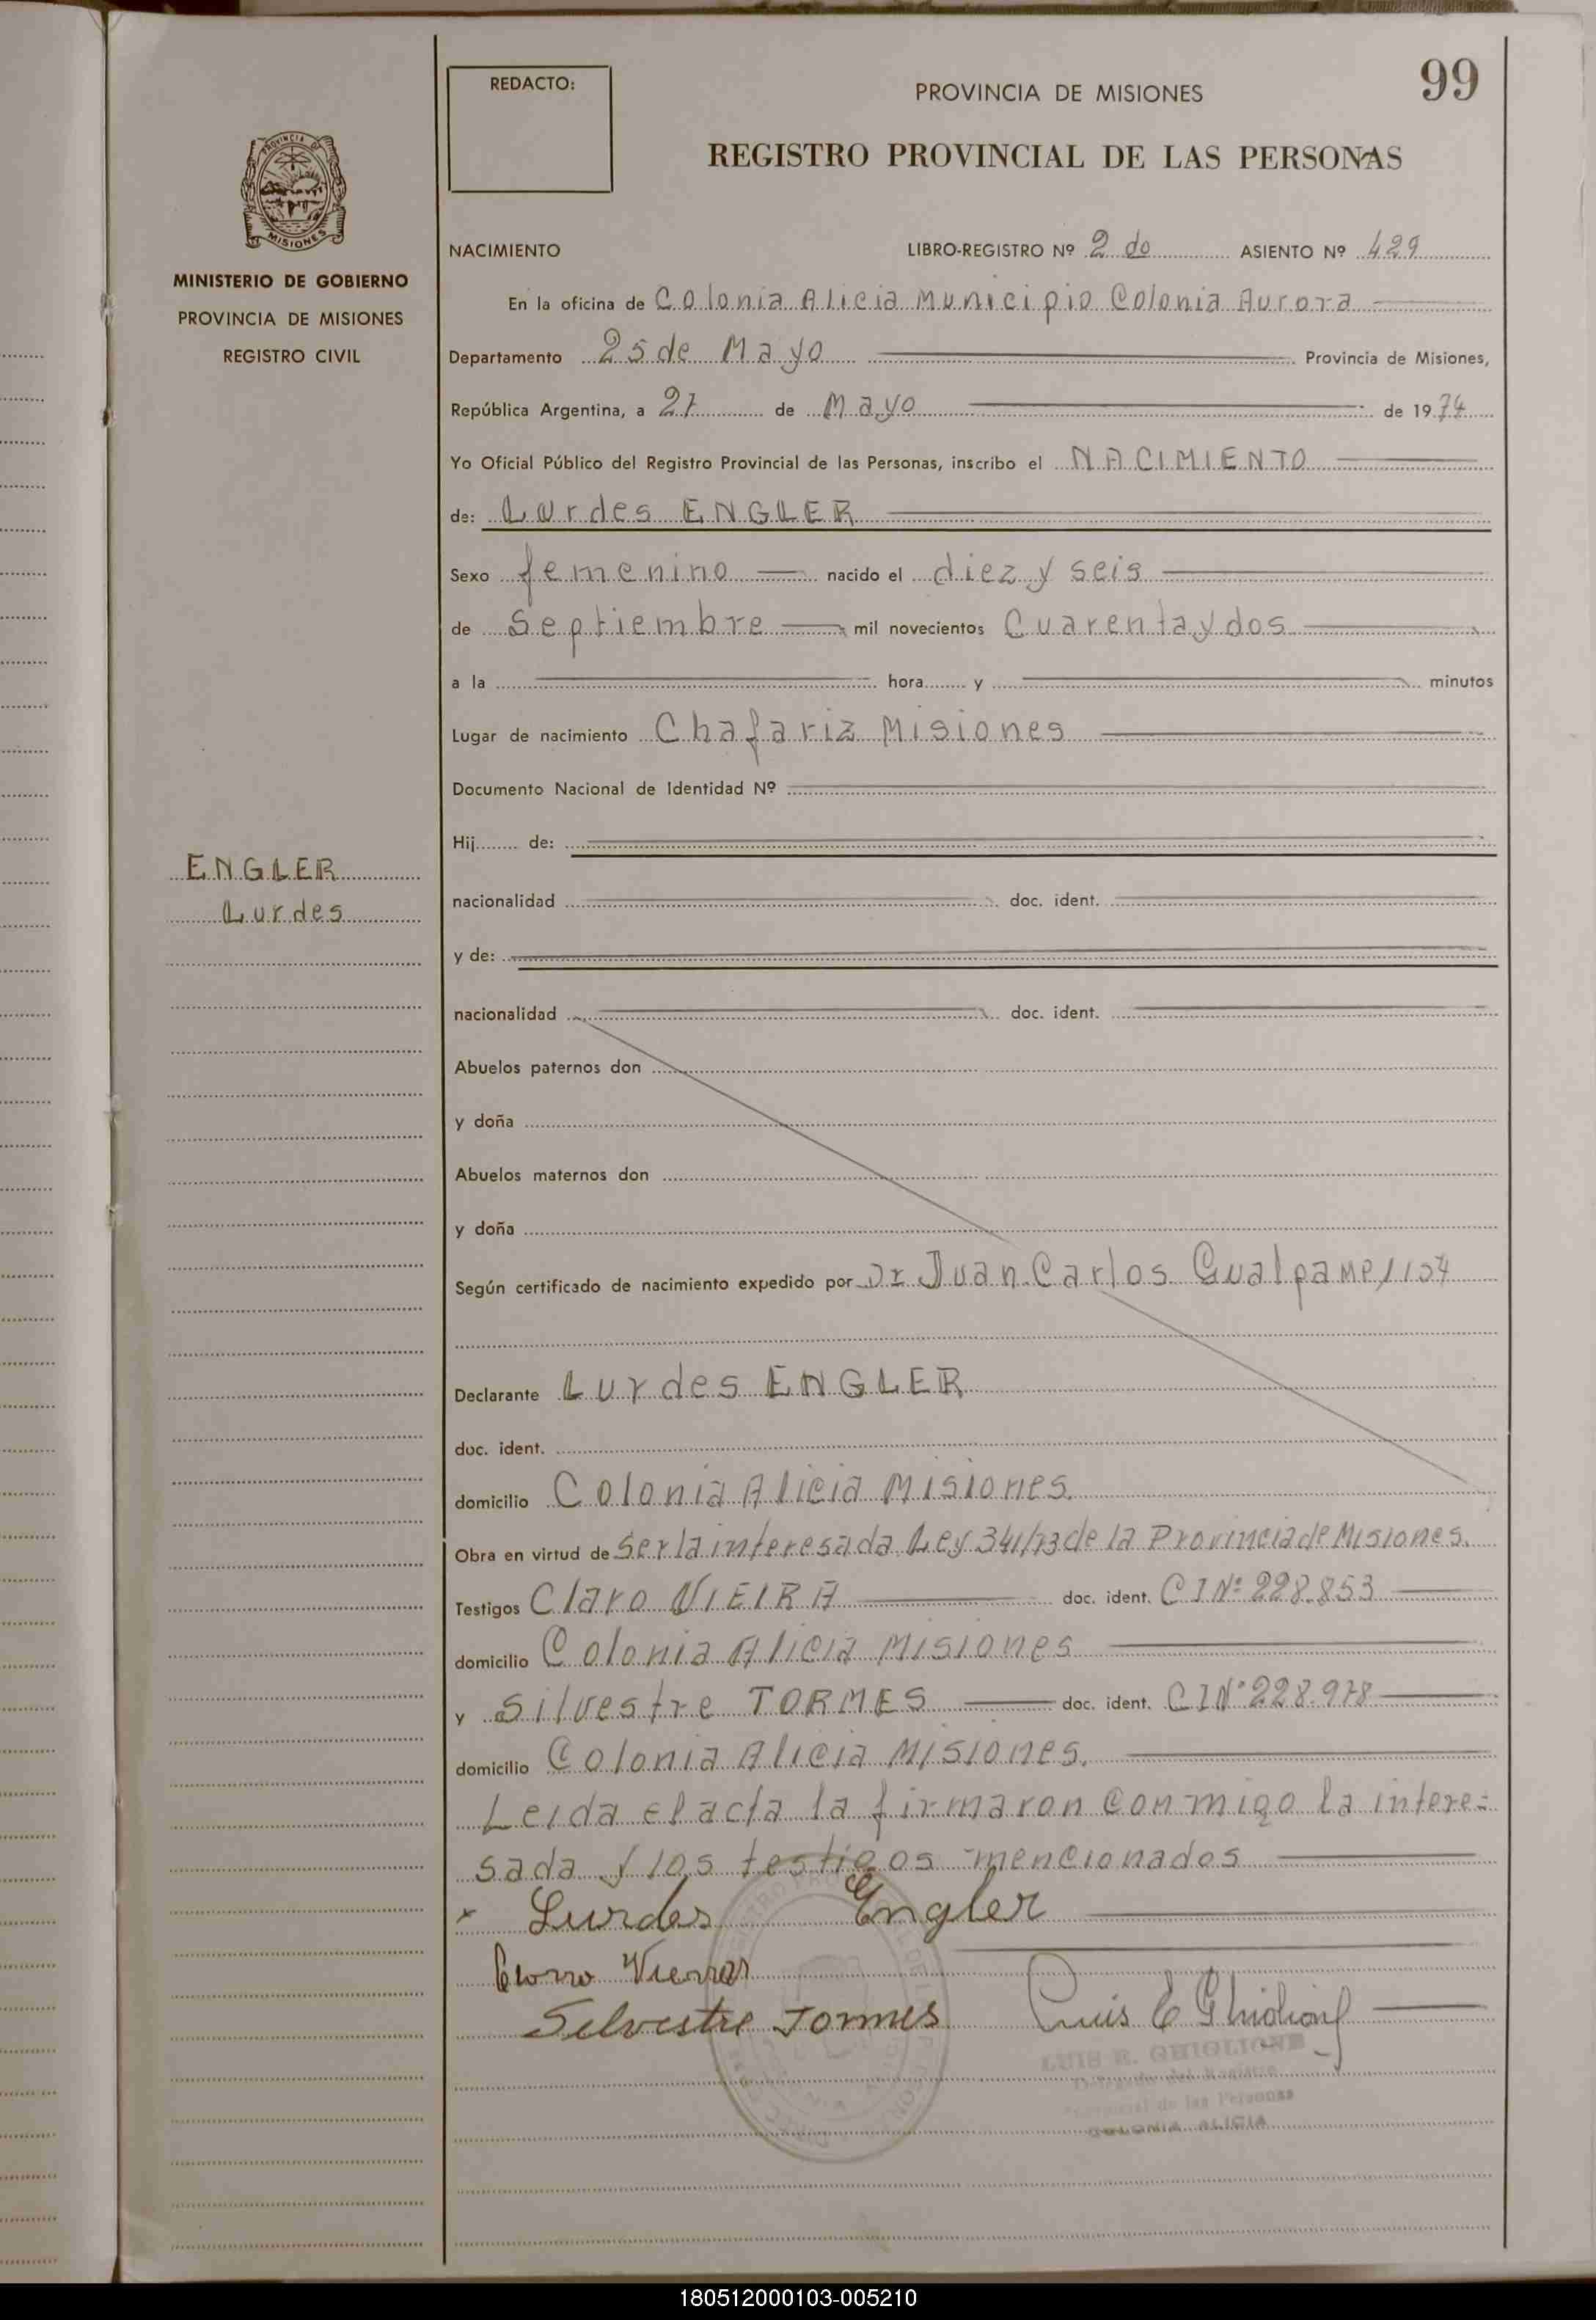 99
REDACTO:
PROVINCIA DE MISIONES
REGISTRO PROVINCIAL DE LAS PERSONAS
PROVINCIA DE
MISIONES
MINISTERIO DE GOBIERNO
PROVINCIA DE MISIONES
REGISTRO CIVIL
ENGLER
Lurdes
NACIMIENTO LIBRO-REGISTRO Nº 2 do ASIENTO Nº 429
En la oficina de Colonia Alicia Municipio Colonia Aurora
Departamento 25 de Mayo Provincia de Misiones,
República Argentina, a 27 de Mayo de 1974
Yo Oficial Público del Registro Provincial de las Personas, inscribo el NACIMIENTO
de: Lurdes ENGLER
Sexo femenino nacido el diez y seis
de Septiembre mil novecientos Cuarenta y dos
a la hora y minutos
Lugar de nacimiento Chafariz Misiones
Documento Nacional de Identidad Nº
Hij de:
nacionalidad doc. ident.
y de:
nacionalidad doc. ident.
Abuelos paternos don
y doña
Abuelos maternos don
y doña
Según certificado de nacimiento expedido por Dr Juan Carlos Gualpa
Declarante Lurdes ENGLER
doc. ident.
domicilio Colonia Alicia Misiones.
Obra en virtud de Ser la interesada Ley 341/73 de la Provincia de Misiones.
Testigos Claro VIEIRA doc. ident. CI Nº 228.853
domicilio Colonia Alicia Misiones
y Silvestre TORMES doc. ident. CI Nº 228.978
domicilio Colonia Alicia Misiones.
Leida el acta la firmaron conmigo la intere=
sada y los testigos mencionados
x Lurdes Engler
Silvestre Tormes Luis E Ghiglione
LUIS E. GHIGLIONE
Delegado del Registro
Provincial de las Personas
COLONIA ALICIA
180512000103-005210